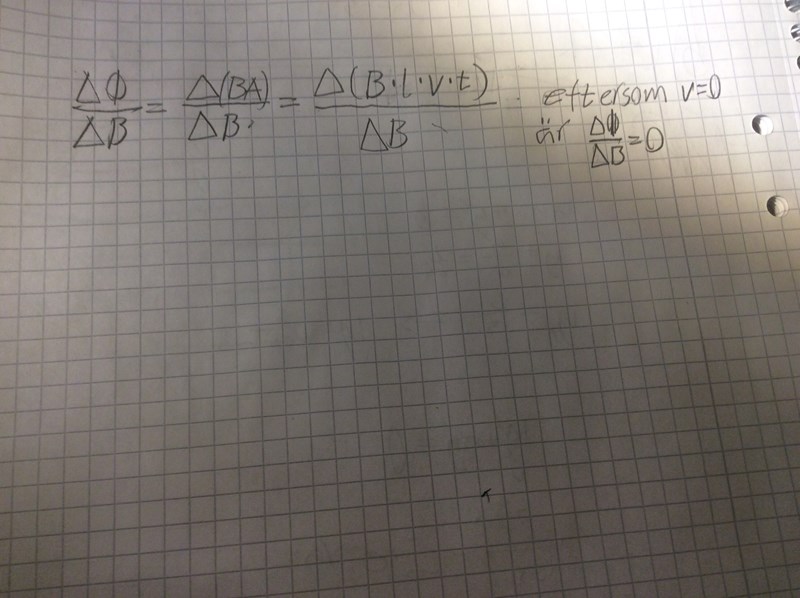 ΔΦ/ΔB = Δ(BA)/ΔB = Δ(B·l·v·t)/ΔB eftersom v=0
är ΔΦ/ΔB=0